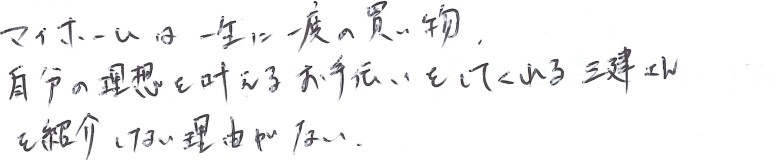 マイホームは一生に一度の買い物、
自分の理想を叶えるお手伝いをしてくれる三建さん
を紹介しない理由がない.